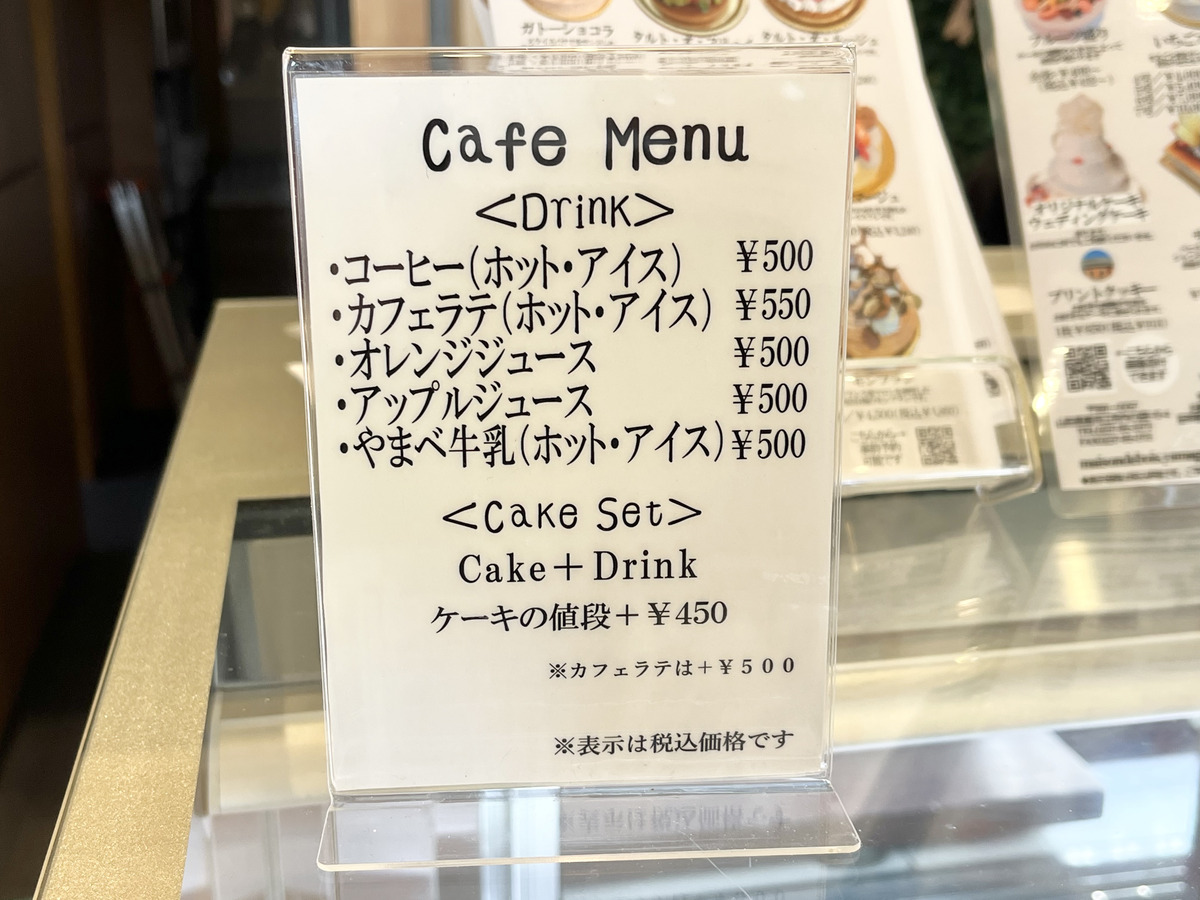 Cafe Menu
<Drink>
・コーヒー(ホット・アイス) ¥500
・カフェラテ(ホット・アイス) ¥550
・オレンジジュース ¥500
・アップルジュース ¥500
・やまべ牛乳(ホット・アイス) ¥500
<Cake Set>
Cake+Drink
ケーキの値段+¥450
※カフェラテは+¥500
※表示は税込価格です
ガトーショコラ
オリジナルケーキ
ウェディングケーキ
プリントクッキー